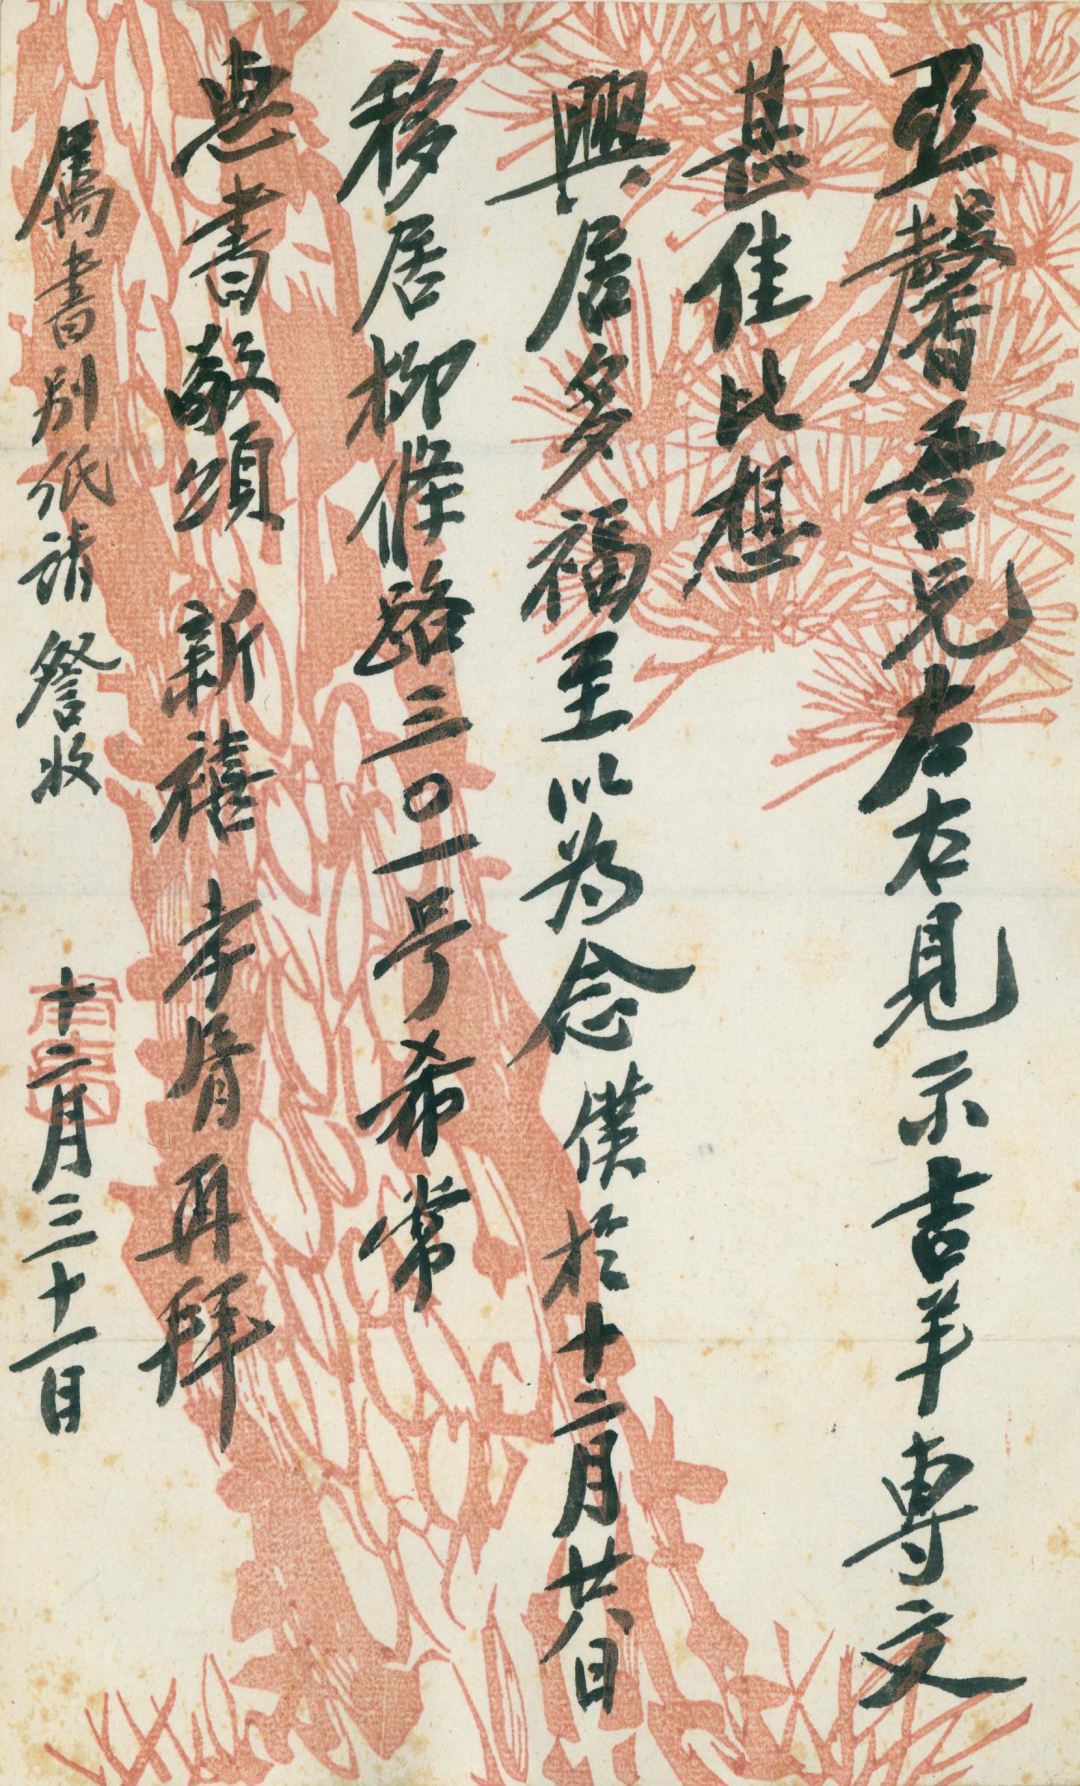 亞馨吾兄左右見示吉羊專文
甚佳比想
興居多福至以為念僕於十二月廿八日
移居柳條路三〇一号希常
惠書敬頌 新禧 孝胥再拜
屬書別紙請 詧收 十二月三十一日